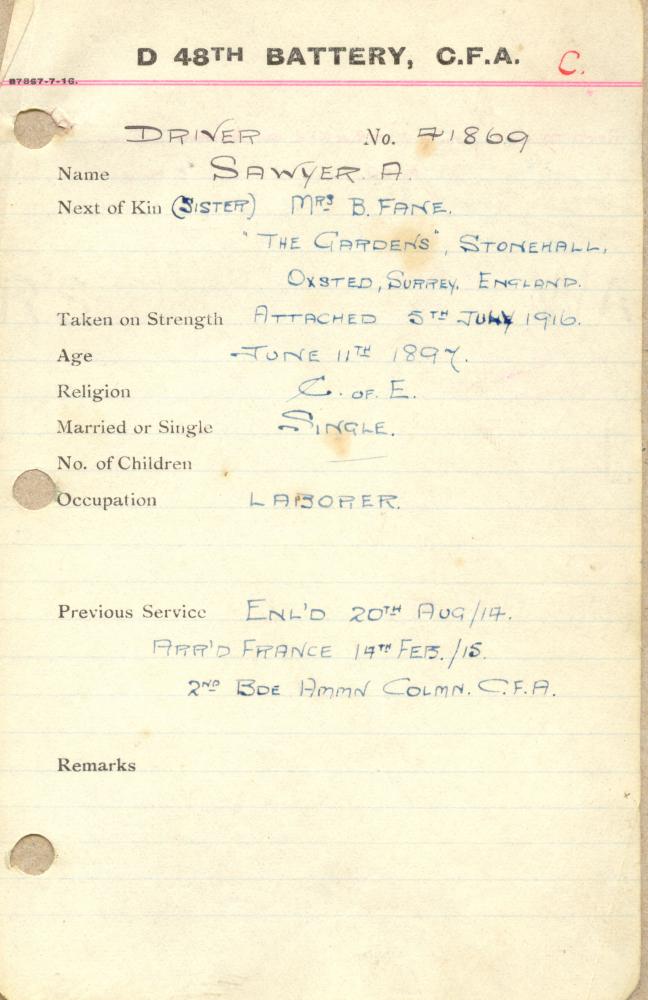 D 48TH BATTERY, C.F.A. C.
B7867-7-16.
DRIVER No. 41869
Name SAWYER. A.
Next of Kin (SISTER) MRS B. FANE.
"THE GARDENS", STONEHALL,
OXSTED, SURREY, ENGLAND.
Taken on Strength ATTACHED 5TH JULY 1916.
Age JUNE 11TH 1897.
Religion C. OF E.
Married or Single SINGLE.
No. of Children —
Occupation LABORER.
Previous Service ENL'D 20TH AUG/14.
ARR'D FRANCE 14TH FEB./15.
2ND BDE AMMN COLMN. C.F.A.
Remarks